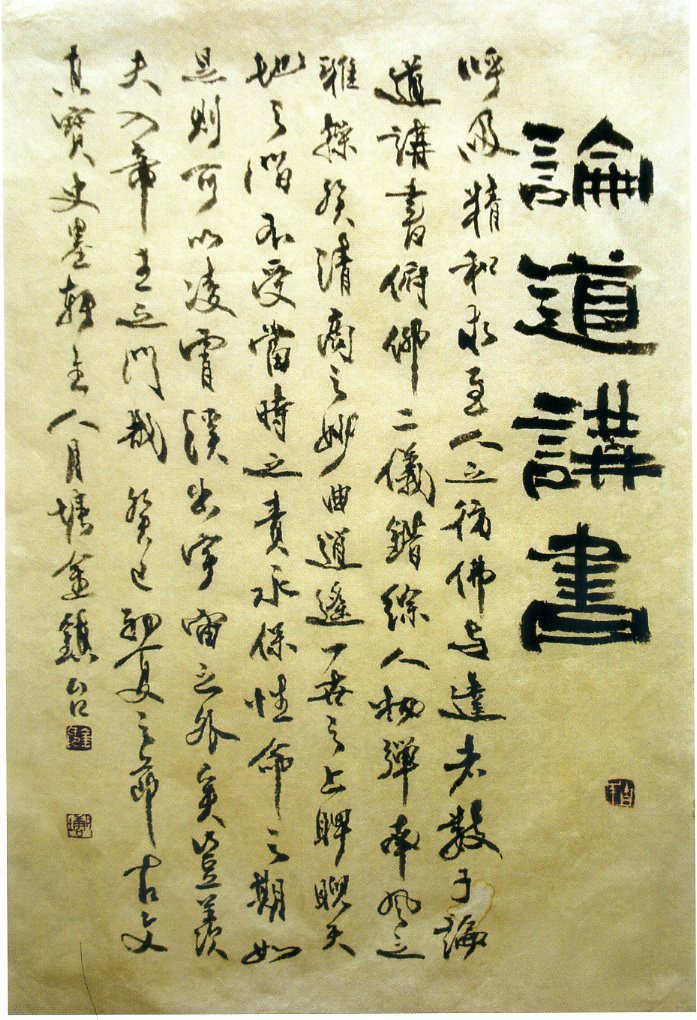 論道講書
呼吸精和求至人之彷佛与達者數子論
道講書俯仰二儀錯綜人物彈南風之
雅操發清商之妙曲逍遙一世之上睥睨天
地之間不受當時之責永保性命之期如
是則可以凌霄漢出宇宙之外矣豈羨
夫入帝王之門哉癸巳初夏之節古文
真寶史墨軒主人月塘金鎮台